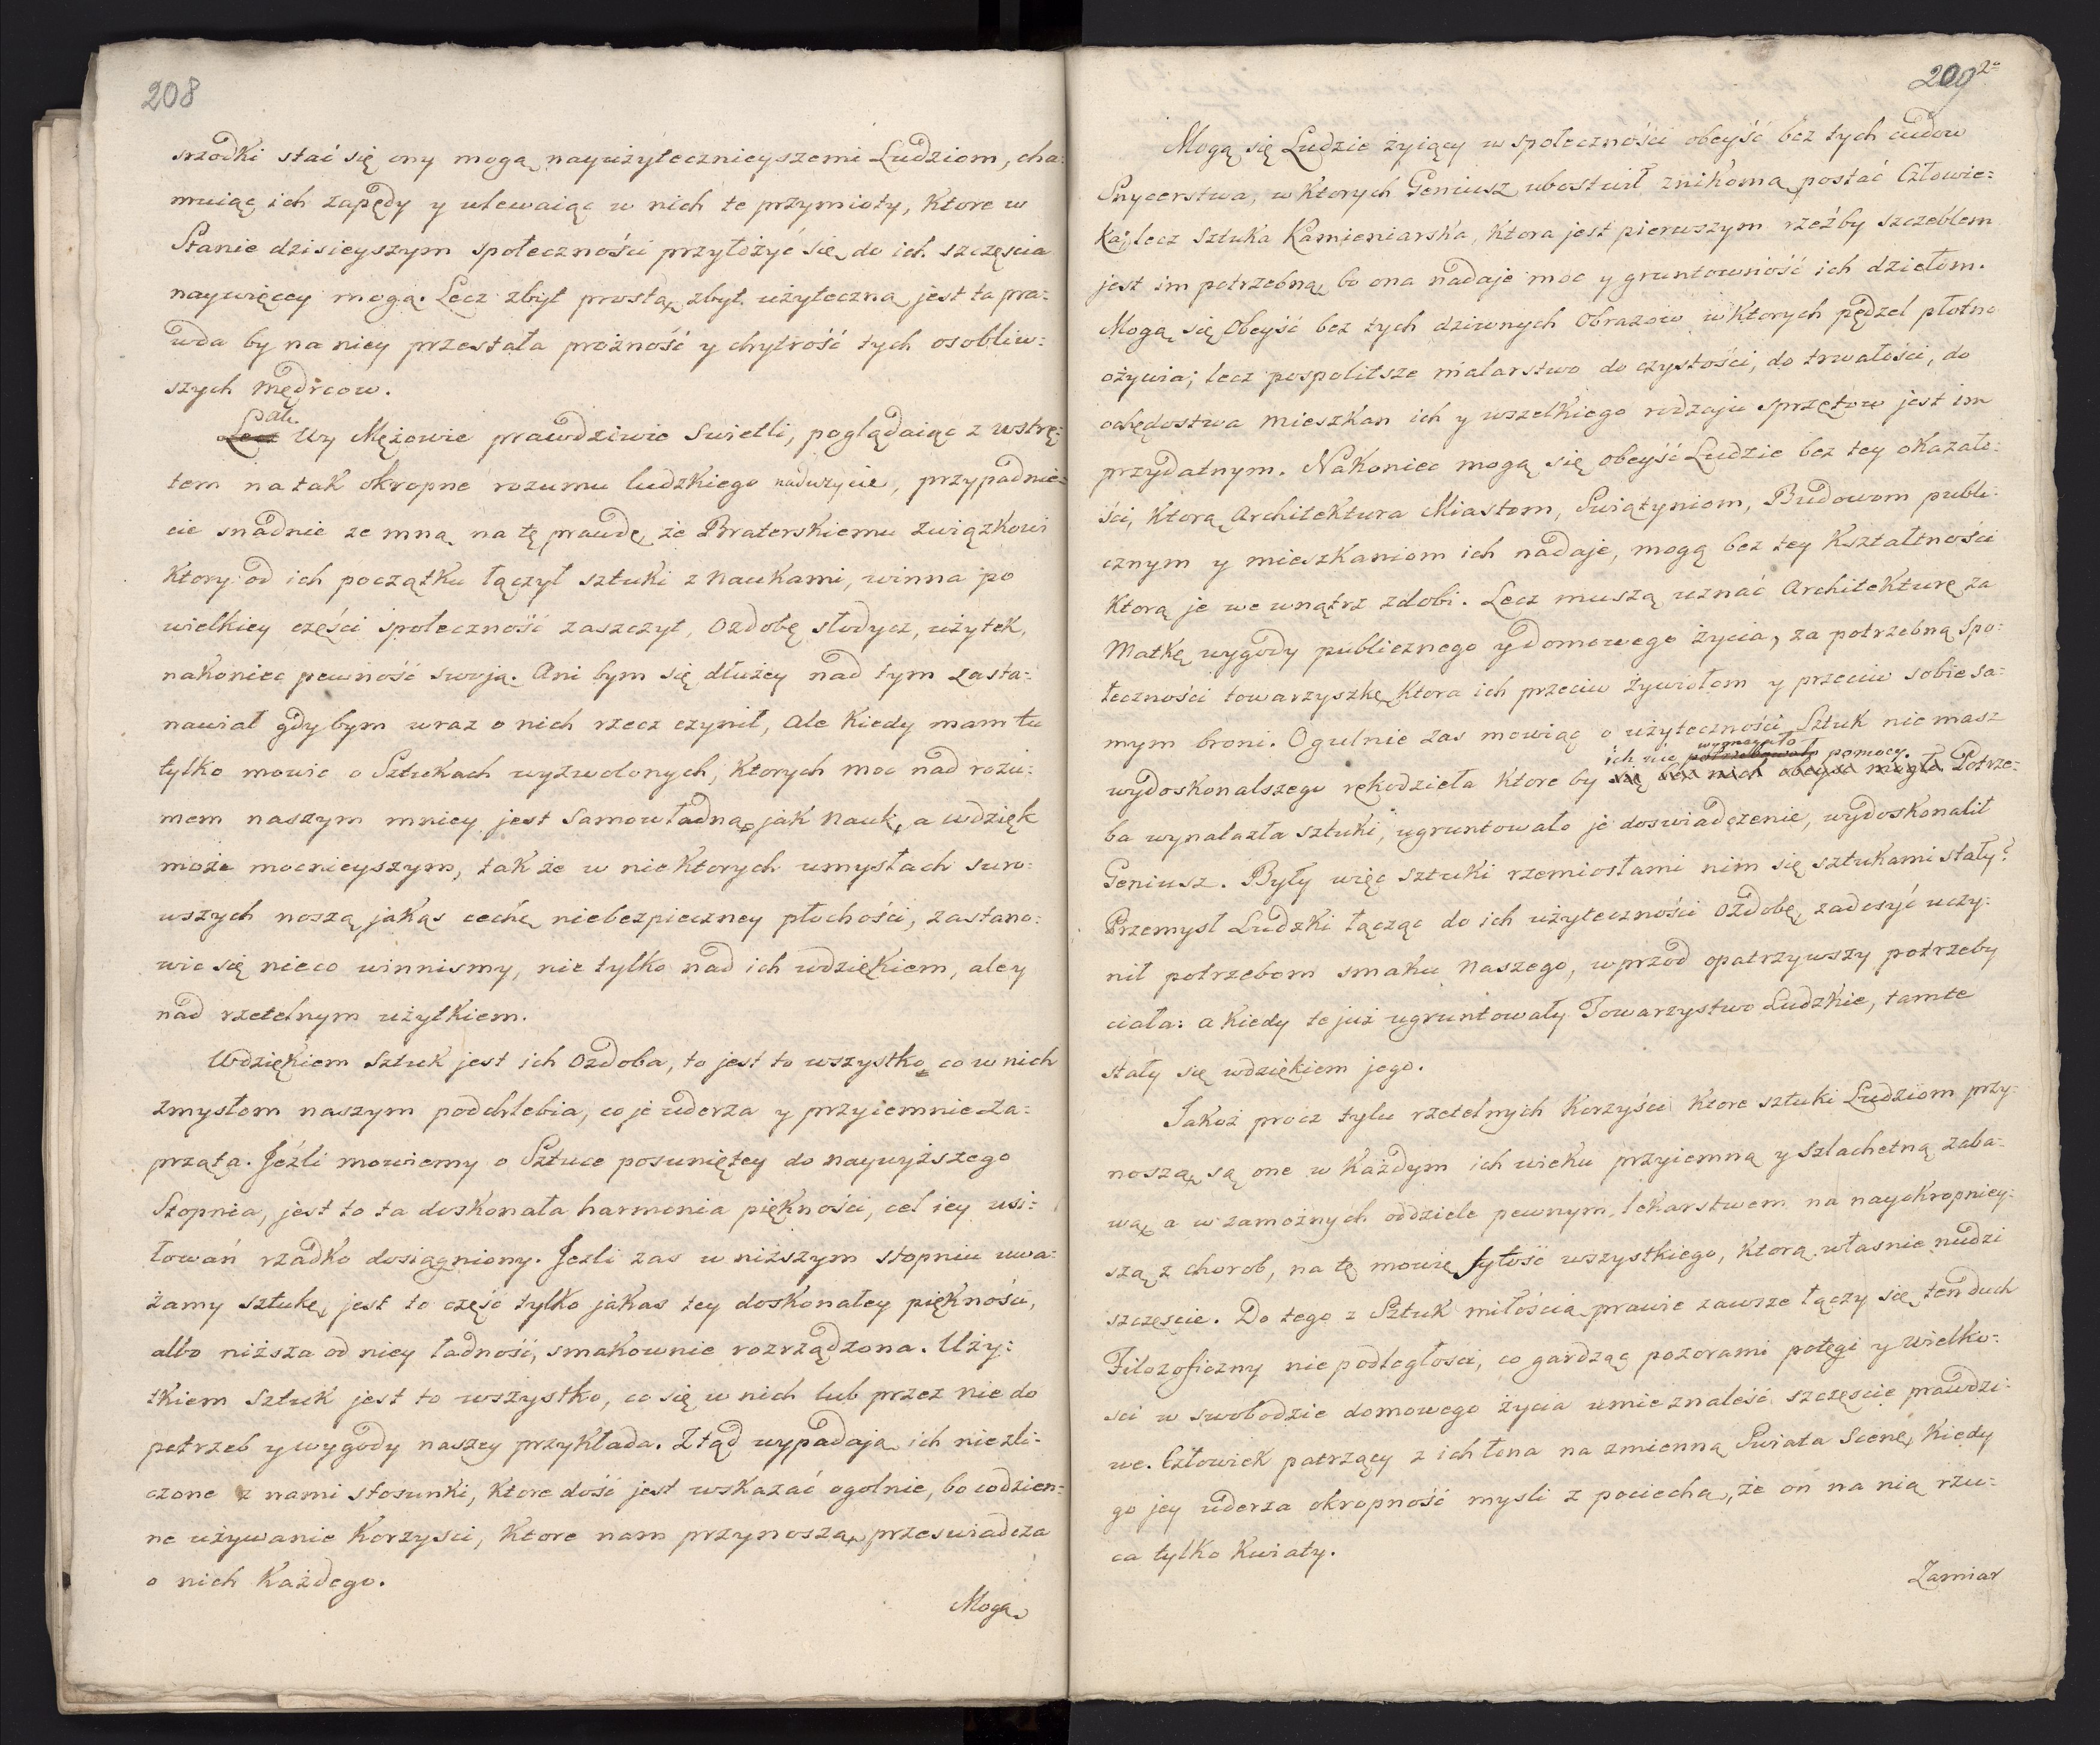 208
srzodki stać się ony mogą nayużytecznieyszemi Ludziom, cha:
muiąc ich zapędy y wlewaiąc w nich te przymioty, Ktore w
Stanie dzisieyszym społeczności przyłożyć się do ich szczęscia
naywięcey mogą. Lecz zbyt prosta, zbyt użyteczna jest ta pra:
wda by na niey przestała prożność y chytrość tych osobliw:
szych mędrcow.
ale
Lecz Wy Mężowie prawdziwie Swietli, poglądaiąc z wstrę:
tem na tak okropne rozumu ludzkiego nadużycie, przypadnie:
cie snadnie ze mną na tę prawdę, że Braterskiemu związkowi
Ktory od ich początku łączył sztuki z Naukami, winna po
wielkiey części społeczność zaszczyt, Ozdobę słodycz, użytek,
nakoniec pewność swoją. Ani bym się dłużey nad tym zasta:
nawiał gdy bym wraz o nich rzecz czynił, Ale Kiedy mam tu
tylko mowić o Sztukach wyzwolonych, Ktorych moc nad rozu:
mem naszym mniey jest Samowładną, jak Nauk, a wdzięk
może mocnieyszym, tak że w nie Ktorych umysłach suro:
wszych noszą jakąs cechę niebezpieczney płochości, zastano:
wic się nieco winnismy, nie tylko nad ich wdziękiem, ale y
nad rzetelnym użytkiem.
Wdziękiem Sztuk jest ich Ozdoba, to jest to wszystko, co w nich
zmysłom naszym podchlebia, co je uderza y przyiemnie za:
prząta. Jeżli mowiemy o Sztuce posuniętey do naywyższego
Stopnia, jest to ta doskonała harmonia piękności, cel iey usi:
łowań rzadko dosiągniony. Jezli zas w niższym stopniu uwa:
żamy sztukę, jest to część tylko jakas tey doskonałey piękności,
albo niższa od niey ładność, smakownie rozrządzona. Uży:
tkiem Sztuk jest to wszystko, co się w nich lub przez nie do
potrzeb y wygody naszey przykłada. Ztąd wypadają ich niezli:
czone z nami stosunki, Ktore dość jest wskazać ogolnie, bo codzien:
ne używanie Korzysci, Ktore nam przynoszą, przeswiadcza
o nich Każdego.
Mogą
209
Mogą się Ludzie żyiący w społeczności obeyść bez tych cudow
Snycerstwa, w Ktorych Geniusz ubostwił znikomą postać Człowie:
ka; lecz sztuka Kamieniarska, Ktora jest pierwszym rzeźby szczeblem
jest im potrzebną, bo ona nadaje moc y gruntowność ich dziełom.
Mogą się Obeyść bez tych dziwnych Obrazow w Ktorych pędzel płotno
ożywia; lecz pospolitsze malarstwo do czystości, do trwałości, do
ochędostwa mieszkan ich y wszelkiego rodzaju sprzętow jest im
przydatnym. Nakoniec mogą się obeyść Ludzie bez tey okazało:
ści, Ktorą Architektura Miastom, Swiątyniom, Budowom publi:
cznym y mieszkaniom ich nadaje, mogą bez tey Kształtności
Ktorą je we wnątrz zdobi. Lecz muszą uznać Architekturę za
Matkę wygody publicznego y domowego życia, za potrzebną Spo:
łeczności towarzyszkę, Ktora ich przeciw żywiołom y przeciw sobie sa:
mym broni. Ogulnie zas mowiąc o użyteczności Sztuk nie masz
wymagało
ich nie potrzebowało pomocy.
wydoskonalszego rękodzieła Ktore by się bez nich obeyść mogło Potrze:
ba wynalazła sztuki, ugruntowało je doswiadczenie, wydoskonalił
Geniusz. Były więc sztuki rzemiosłami nim się sztukami stały?
Przemysł Ludzki łącząc do ich użyteczności Ozdobę, zadosyć uczy:
nił potrzebom smaku Naszego, wprzod opatrzywszy potrzeby
ciała: a Kiedy te już ugruntowały Towarzystwo Ludzkie, tamte
stały się wdziękiem jego.
Jakoż procz tylu rzetelnych Korzyści Ktore sztuki Ludziom przy:
noszą, są one w Każdym ich wieku przyiemną y szlachetną zaba:
wą, a w zamożnych oddziele pewnym lekarstwem na nayokropniey:
szą z chorob, na tę mowię sytość wszystkiego, Ktorą własnie nudzi
szczęscie. Do tego z Sztuk miłością prawie zawsze łączy się ten duch
Filozoficzny niepodległosci, co gardząc pozorami potęgi y wielko:
sci w swobodzie domowego życia umie znaleść szczęscie prawdzi:
we. Człowiek patrzący z ich łona na zmienną Swiata Scenę, Kiedy
go jey uderza okropność mysli z pociechą, że on na nią rzu:
ca tylko Kwiaty.
Zamiar